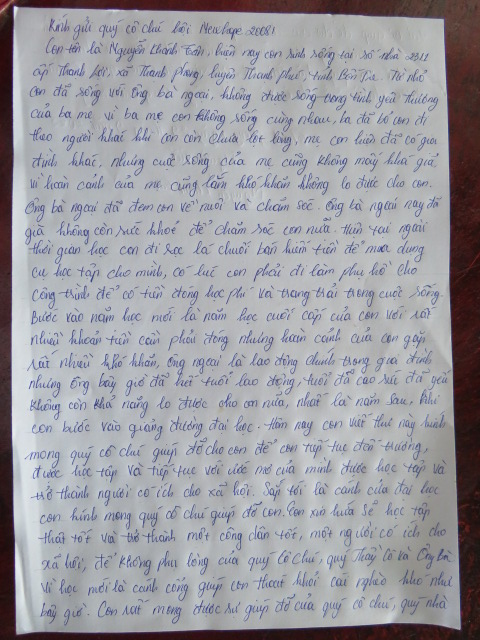 Kính gửi quý cô chú hội Newhope 2008!
Con tên là Nguyễn Khánh Toàn, hiện nay con sinh sống tại số nhà 2311
ấp Thanh Lợi, xã Thanh Phong, huyện Thạnh Phú, tỉnh Bến Tre. Từ nhỏ
con đã sống với ông bà ngoại, không được sống trong tình yêu thương
của ba mẹ vì ba mẹ con không sống cùng nhau, ba đã bỏ con đi
theo người khác khi còn còn chưa lọt lòng, mẹ con hiện đã có gia
đình khác, nhưng cuộc sống của mẹ cũng không mấy khá giả
vì hoàn cảnh của mẹ cũng lắm khó khăn không lo được cho con.
Ông bà ngoại đã đem con về nuôi và chăm sóc. Ông bà ngoại nay đã
già không còn sức khoẻ để chăm sóc con nữa. Hiện tại ngoài
thời gian học con đi sọc lá chuối bán kiếm tiền để mua dụng
cụ học tập cho mình, có lúc con phải đi làm phụ hồ cho
công trình để có tiền đóng học phí và trang trải trong cuộc sống.
Bước vào năm học mới là năm học cuối cấp của con với rất
nhiều khoản tiền cần phải đóng nhưng hoàn cảnh của con gặp
rất nhiều khó khăn, ông ngoại là lao động chính trong gia đình
nhưng ông bây giờ đã hết tuổi lao động, tuổi đã cao sức đã yếu
không còn khả năng lo được cho con nữa, nhất là năm sau, khi
con bước vào giảng đường đại học. Hôm nay con viết thư này kính
mong quý cô chú giúp đỡ cho con để con tiếp tục đến trường,
được học tập và tiếp tục với ước mơ của mình được học tập và
trở thành người có ích cho xã hội. Sắp tới là cánh cửa đại học
con kính mong quý cô chú giúp đỡ con. Con xin hứa sẽ học tập
thật tốt và trở thành một công dân tốt, một người có ích cho
xã hội, để không phụ lòng của quý Cô Chú, quý Thầy Cô và Ông Bà
Vì học mới là cánh cổng giúp con thoát khỏi cái nghèo khó như
bây giờ. Con rất mong được sự giúp đỡ của quý cô chú, quý nhà